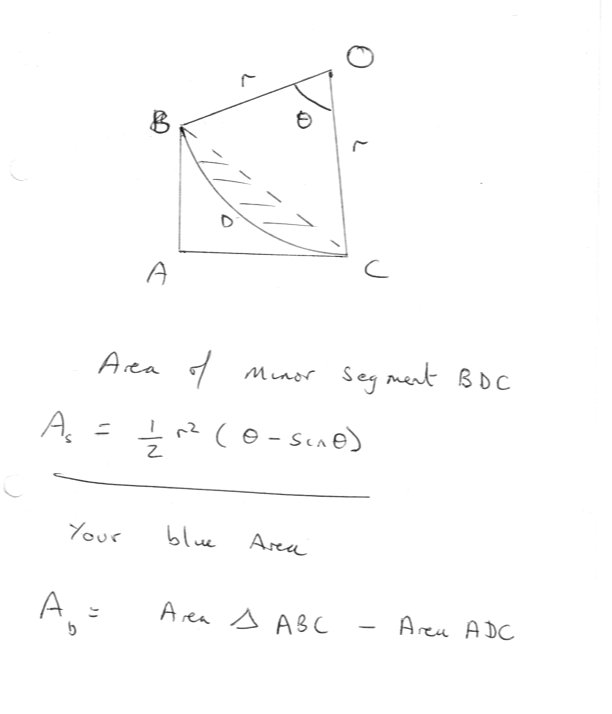 O
r
B
θ
r
D
A
C
Area of minor segment BDC
As = 1/2 r² ( θ - sinθ)
Your blue Area
Ab = Area △ ABC - Area ADC